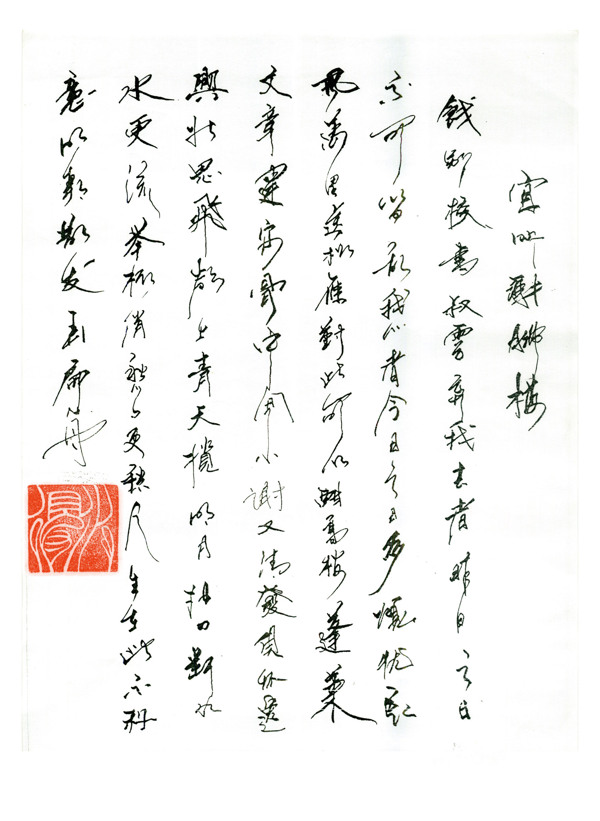 宣州謝朓楼
餞別校書叔雲棄我去者昨日之日
不可留乱我心者今日之日多煩憂長
風萬里送秋雁對此可以酣高楼蓬萊
文章建安骨中间小謝又清發俱怀逸
興壮思飛欲上青天攬明月抽刀斷水
水更流举杯消愁愁更愁人生在此不称
意明朝散发弄扁舟